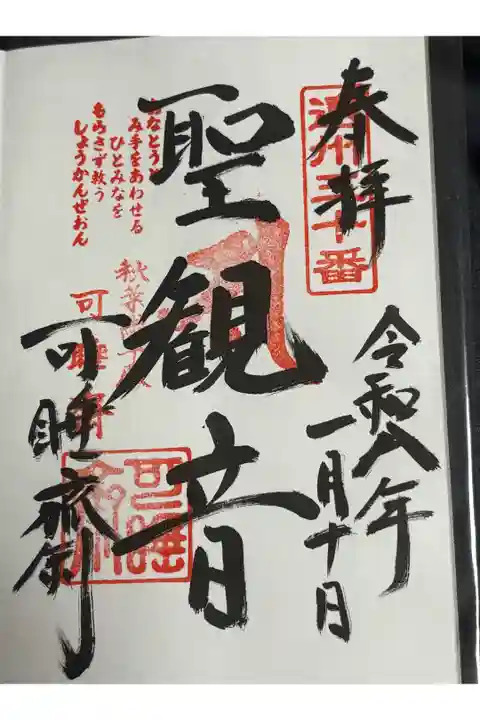 奉拝
遠州三十番
令和八年
一月十日
聖観音
み手をあわせる
ひとみなを
もらさず救う
しょうかんぜおん
秋葉総本殿
可睡斎
可睡斎